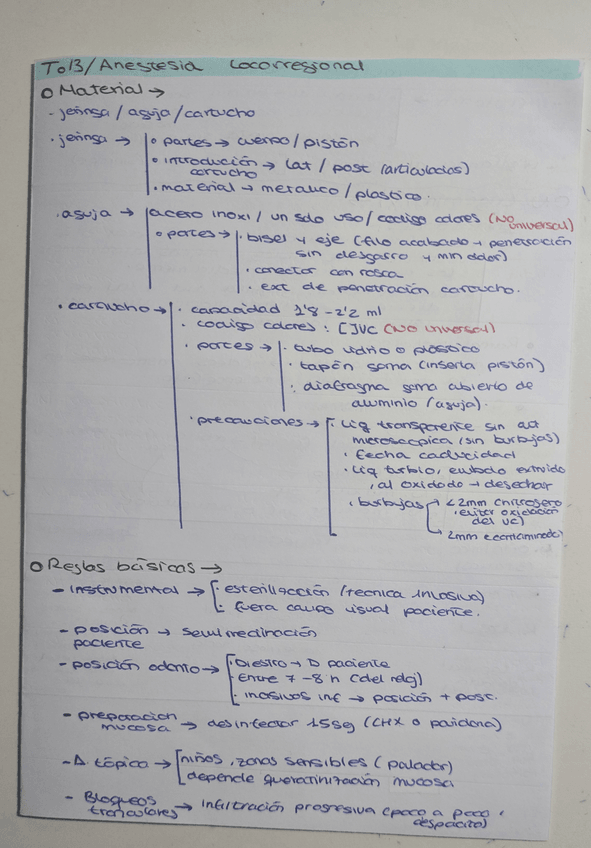 To13/Anestesia Locorregional
o Material →
- jeringa/aguja/cartucho
· jeringa → o partes → cuerpo/pistón
o introducción cartucho → lat/post (articulados)
· material → metálico/plástico.
· aguja → acero inoxi/un solo uso/codigo colores (No universal)
o partes → · bisel y eje (filo acabado → penetración
sin desgarro y min dolor)
· conector con rosca
· ext de penetración cartucho.
· cartucho → · capacidad 1'8-2'2 ml
· codigo colores: (No universal)
· partes → · tubo vidrio o plástico
· tapón goma (inserta pistón)
· diafragma goma cubierto de
aluminio (aguja).
· precauciones → · Liq transparente sin
microscópica (sin burbujas)
· fecha caducidad
· Liq turbio, embolo extruido
, al oxidado → desechar
· burbujas → <2mm nitrógeno
(evitar oxidación
del VC)
→ 2mm contaminado
o Reglas básicas →
- instrumental → · esterilización (técnica invasiva)
· fuera campo visual paciente.
- posición paciente → semireclinación
- posición odonto → · Diestro → D paciente
· Entre 7-8h (del reloj)
· incisivos inf → posición + post.
- preparación mucosa → desinfectar 15sg (CHX o povidona)
- A. tópica → niños, zonas sensibles (paladar)
depende queratinización mucosa
- Bloqueos tronculares → infiltración progresiva (poco a poco,
despacito)